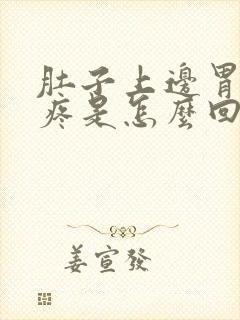 肚子上邊胃
疼是怎麼回
姜宣發